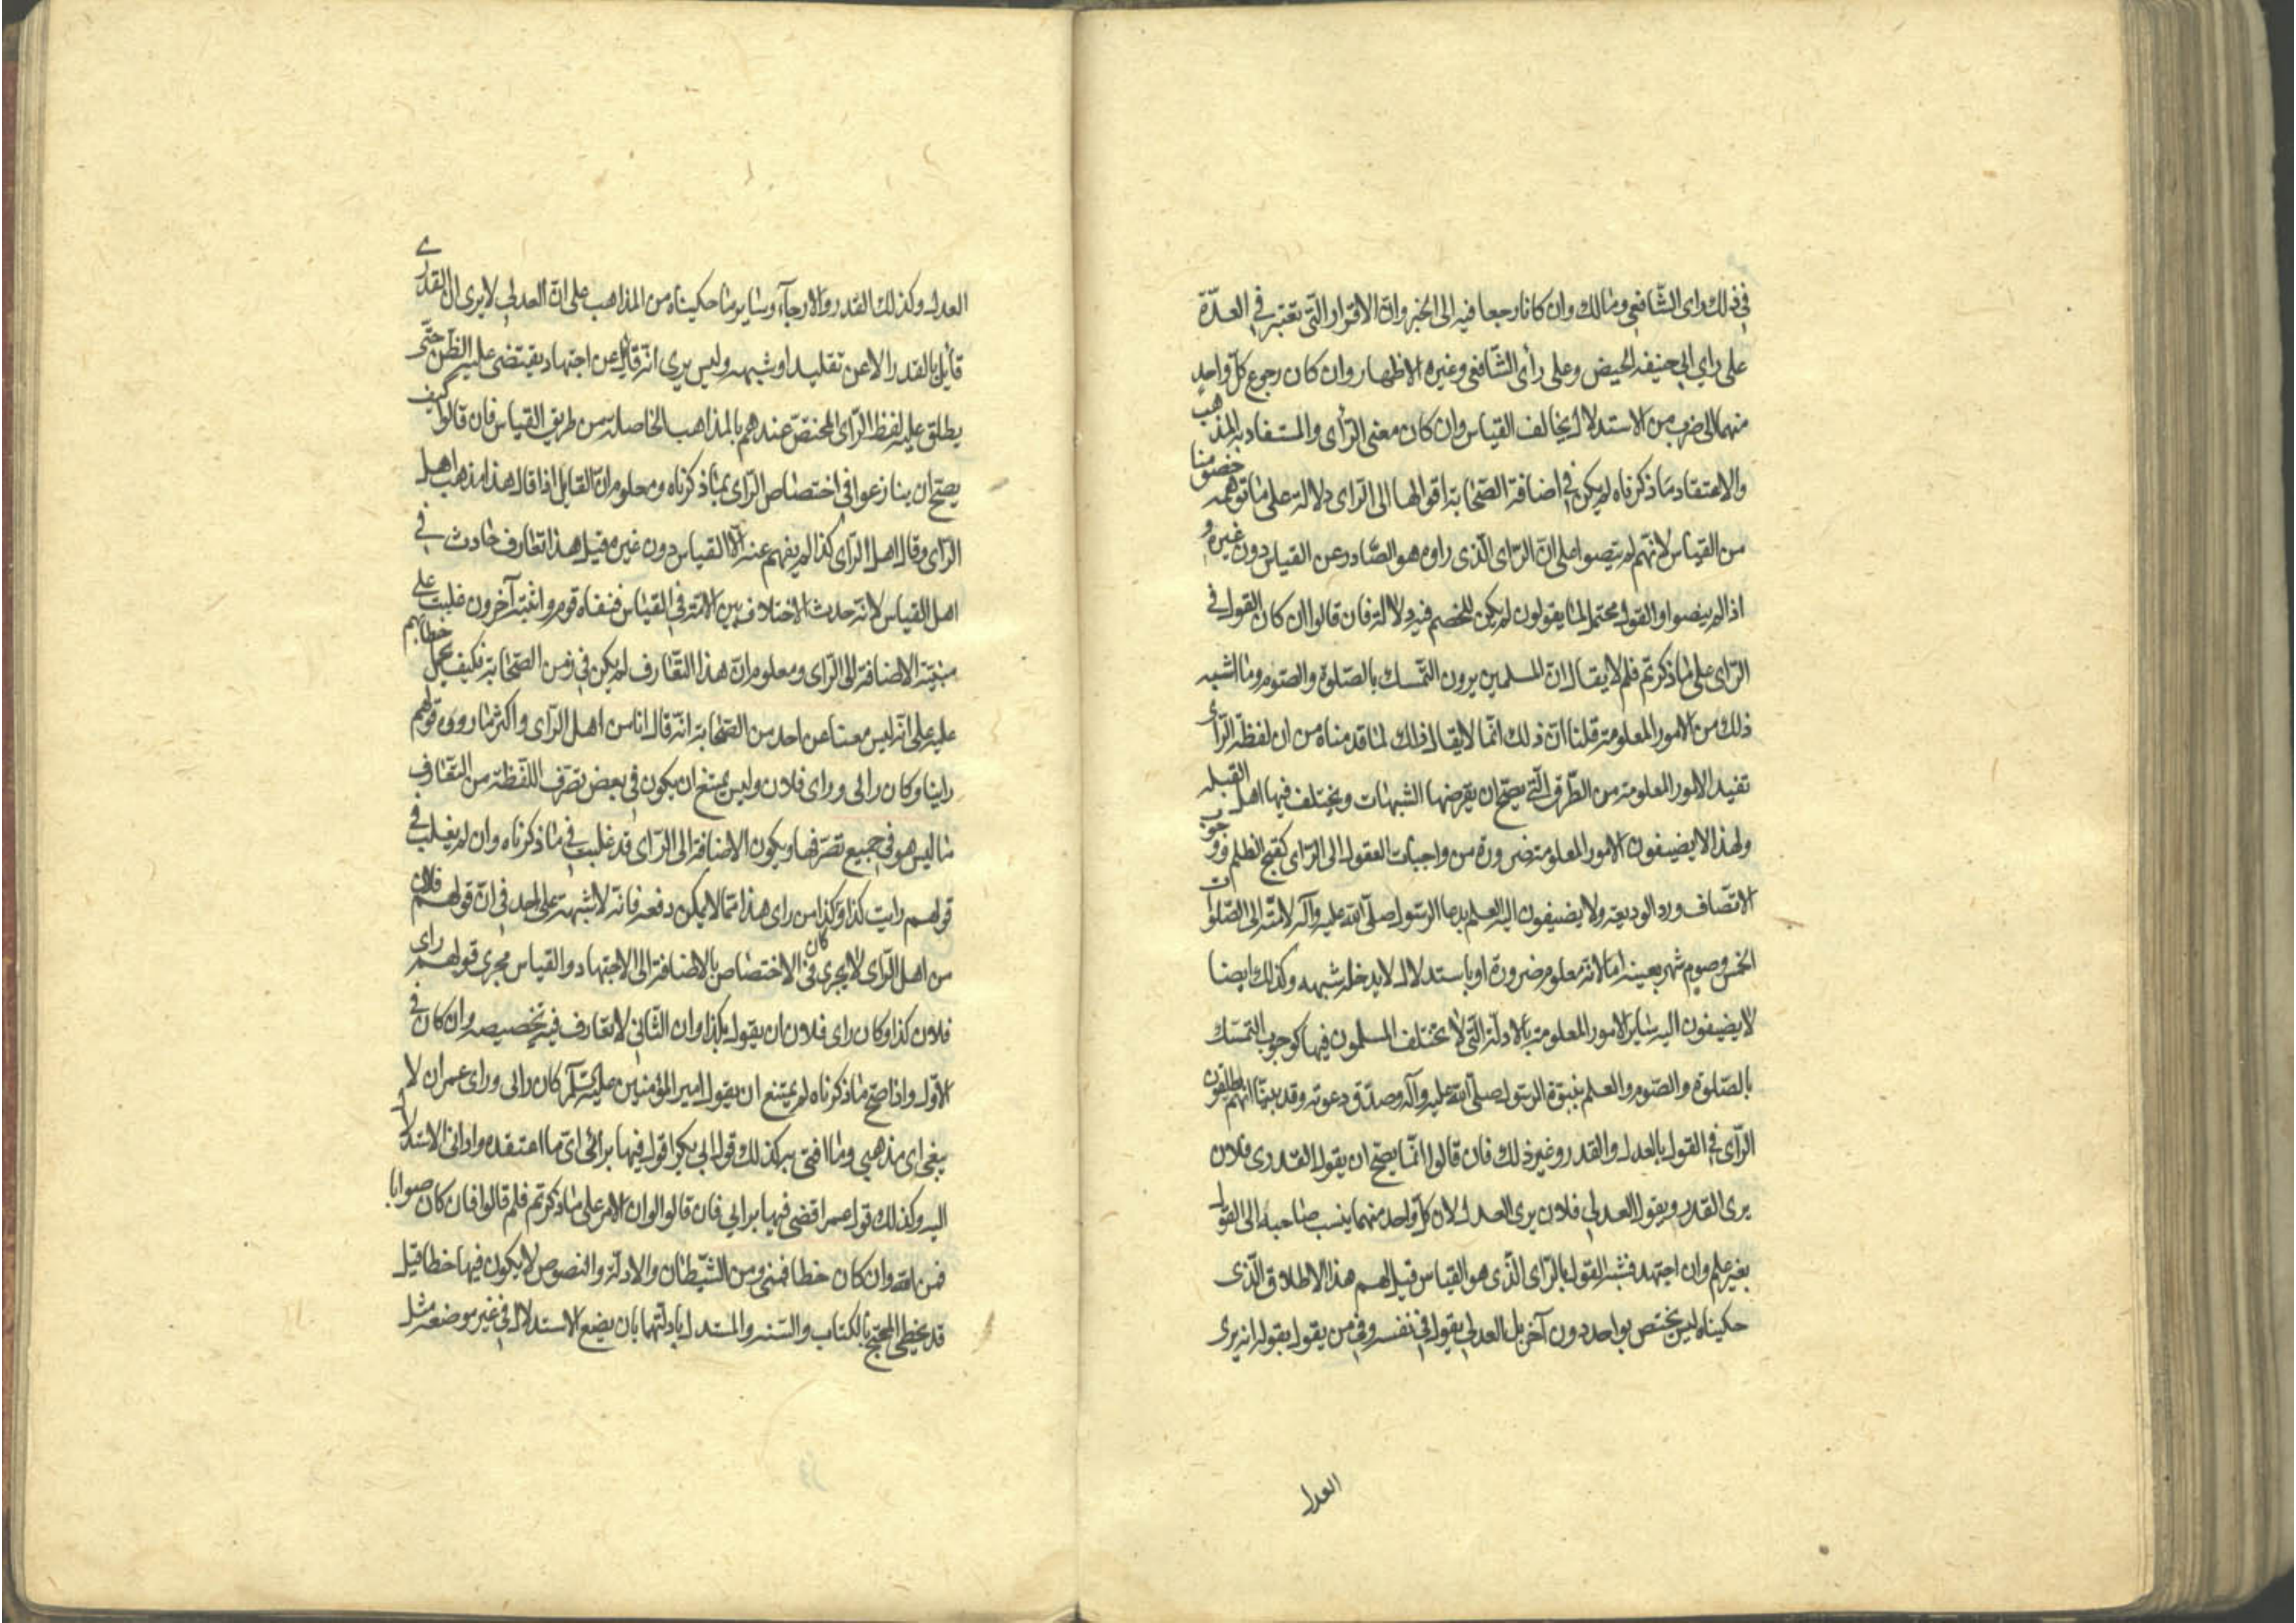 في ذلك راى الشّافعي ومالك وان كانا رجعا فيه الى الخبر وان الاقرار التي تعتبر في العدّة
على راي ابي حنيفه الحيض وعلى رأى الشّافعي وغيره الاظهار وان كان رجوع كلّ واحد
منهما الى ضرب من الاستدلال يخالف القياس وان كان معنى الرّأى والمستفاد به المذهب
والاعتقاد ما ذكرناه لم يكن في اضافة الصّحابة اقوالها الى الرّاى دلالة على ما توهمه خصومنا
من القياس لانّهم لم ينصوا على انّ الرّاى الّذى راوه هو الصّادر عن القياس دون غيره و
اذا لم ينصوا والقول محتمل لما يقولون لم يكن للخصم فيه دلالة فان قالوا ان كان القول في
الرّاى على ما ذكرتم فلم لا يقال انّ المسلمين يرون التّمسك بالصّلوة والصّوم وما اشبه
ذلك من الامور المعلومة قلنا انّ ذلك انّما لا يقال ذلك لما قدمناه من ان لفظة الرّاى
تفيد الامور المعلومة من الطّرق الّتي يصحّ ان يعرضها الشبهات ويختلف فيها اهل القبله
ولهذا لا يضيفون الامور المعلومة ضرورة من واجبات العقول الى الرّاى كقبح الظلم ووجوب
الانصّاف ورد الوديعة ولا يضيفون اليه العلم بدعا الرّسول صلّى الله عليه وآله لامّته الى الصّلوات
الخمس وصوم شهر بعينه اما لانه معلوم ضرورة او باستدلال لا يدخله شبهه وكذلك ايضا
لا يضيفون اليه ساير الامور المعلومة بالادلة الّتي لا تختلف المسلمون فيها كوجوب التمسّك
بالصّلوة والصّوم والعلم بنبوّة الرّسول صلّى الله عليه وآله وصدق دعوته وقد بينّا انهم يطلقون
الرّاى في القول بالعدل والقدر وغير ذلك فان قالوا انّما يصحّ ان يقول القدرى فلان
يرى القدر ويقول العدلي فلان يرى العدل لان كلّ واحد منهما ينسب صاحبه الى القول
بغير علم وان اجتهد فشبه القول بالرّاى الّذى هو القياس قيل لهم هذا الاطلاق الّذى
حكيناه ليس يختص بواحد دون آخر بل العدلي يقول في نفسه وفي من يقول بقوله انه يرى
العدل
العدل وكذلك القدر والارجآء وساير ما حكيناه من المذاهب على انّ العدلي لا يرى انّ القدرى
قائل بالقدر الا عن تقليد او شبهه وليس يرى انّه قايل عن اجتهاد يقتضى غلبة الظّن حتّى
يطلق عليه لفظ الرّاى المختصّ عندهم بالمذاهب الحاصلة من طريق القياس فان قالوا كيف
يصحّ ان ينازعوا في اختصاص الرّاى بما ذكرناه ومعلوم انّ القايل اذا قال هذا مذهب اهل
الرّاى وقال اهل الرّاى كذا لم يفهم عنه الّا القياس دون غيره قيل هذا تعارف حادث في
اهل القياس لانه حدث الاختلاف بين الامّة في القياس فنفاه قوم واثبته آخرون غلبت على
مثبتيه الاضافة الى الرّاى ومعلوم انّ هذا التّعارف لم يكن في زمن الصّحابة فكيف يحمل خطابهم
عليه على انّه ليس معنا عن احد من الصّحابة انّه قال انا من اهل الرّاى واكثر ما روى قولهم
راينا وكان رائى وراى فلان وليس يمتنع ان يكون في بعض تصرّف اللّفظة من التعارف
ما ليس هو في جميع تصرّفها ويكون الاضافة الى الرّاى قد غلبت في ما ذكرناه وان لم يغلب في
قولهم رايت كذا وكذا من راى هذا ممّا لا يمكن دفعه فانّه لا شبهة على احد في انّ قولهم فلان
من اهل الرّاى لا يجرى في الاختصاص بالاضافة الى الاجتهاد والقياس مجرى قولهم راى
فلان كذا وكان راى فلان ان يقول بكذا وان الثّاني لا تعارف فيه تخصيصه وان كان في
الاوّل واذا صحّ ما ذكرناه لم يمتنع ان يقول امير المؤمنين عليه السّلم كان رائى وراى عمر ان لا
يبعن اى مذهبي وما افتى به كذلك قول ابي بكر اقول فيها برائى اى ما اعتقده واداني الاستدلال
اليه وكذلك قول عمر اقضى فيها برايي فان قالوا لو ان الامر على ما ذكرتم فلم قالوا فان كان صوابا
فمن الله وان كان خطا فمنى ومن الشّيطان والادلّة والنصوص لا يكون فيها خطا قيل
قد يخطى المحتجّ بالكتاب والسّنه والمستدل بادلّتهما بان يضع الاستدلال في غير موضعه مثل